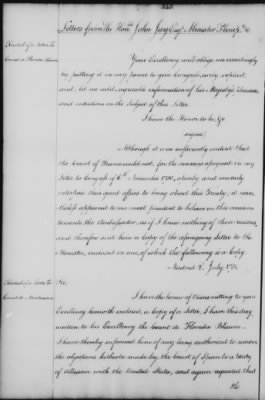 Letters from the Honble John Jay Esqr Minister Plenipo &c
Record of a Letter to
Count de Florida Blanca
Your Excellency will oblige me exceedingly
by putting it in my power to give Congress, early, explicit
and, let me add, agreeable information of his Majesty's pleasure
and intentions on the subject of this Letter.
I have the Honor to be &c
(signed)
Although it was sufficiently evident that
the Count of could not, for the reasons assigned in my
Letter to Congress of 6th November 1780, sincerely and
his good offices to bring about this Treaty, it nevertheless
appeared to me most prudent to behave on this occasion
towards the Ambassador, as if I knew nothing of those reasons,
and therefore sent him a copy of the aforegoing letter to the
Minister, enclosed in one, of which the following is a Copy.
Madrid 2d July 1781
Record of a Letter to
Count de Montmorin
Sir,
I have the honor of transmitting to your
Excellency herewith enclosed, a copy of a letter, I have this day,
written to his Excellency the Count de Florida Blanca.
I have thereby informed him of my being authorized to remove
the objections hitherto made by the Court of Spain to a treaty
of alliance with the United States, and again requested that
the